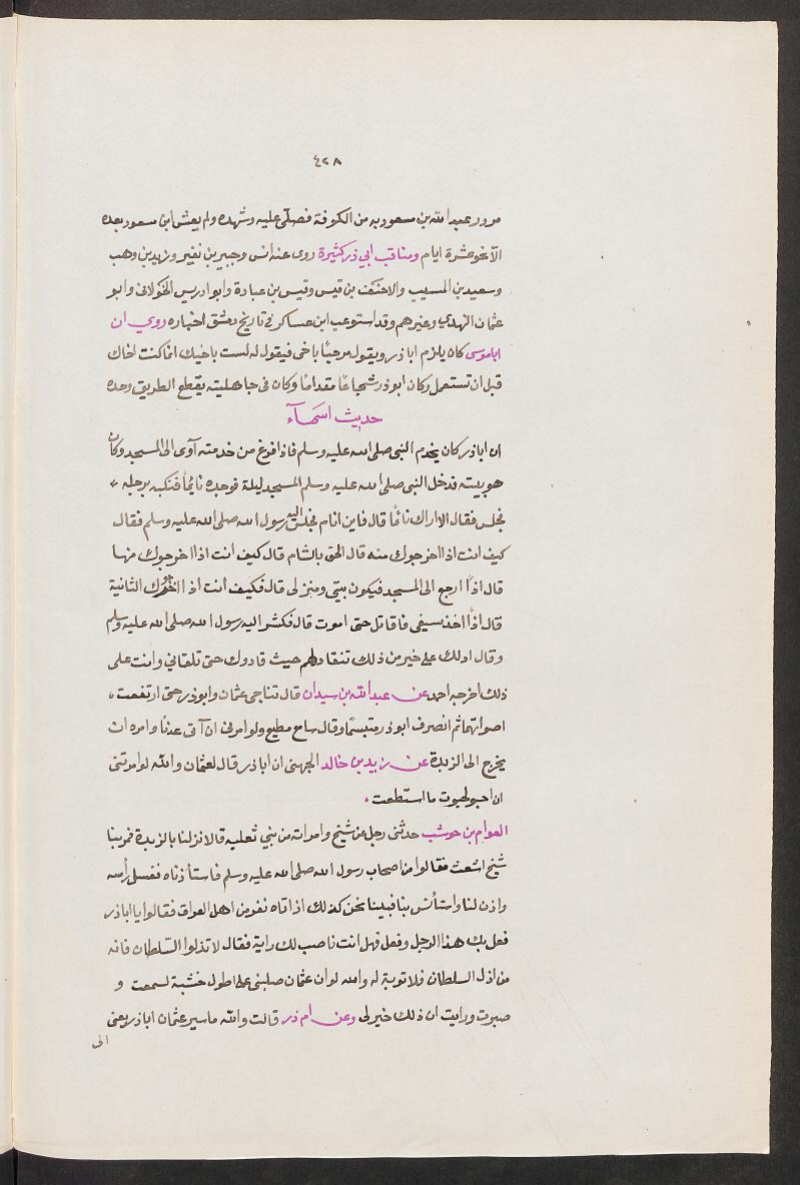 ٤٢٨
مرور عبد الله بن مسعود به من الكوفة فصلّى عليه وشهده ولم يعش ابن مسعود بعده
الا نحو عشرة ايام ومناقب ابي ذر كثيرة روى عنه انس وجبير بن نفير وزيد بن وهب
وسعيد بن المسيب والاحنف بن قيس وقيس بن عبادة وابو ادريس الخولانى وابو
عثمان النهدي وغيرهم وقد استوعب ابن عساكر فى تاريخ دمشق اخباره روي ان
اباموسى كان يلزم اباذر ويقول مرحبًا باخى فيقول له لست باخيك انما كنت اخاك
قبل ان تستعمل وكان ابوذر شجاعًا مقدامًا وكان فى جاهليته يقطع الطريق وحده
حديث اسمآء
ان اباذر كان يخدم النبى صلى الله عليه وسلم فاذا فرغ من خدمته آوى الى المسجد وكان
هو بيته فدخل النبى صلى الله عليه وسلم المسجد ليلة فوجده نايمًا فنكبه برجله
نجلس فقال الا اراك نامًا قال فاين انام نجلس اليه رسول الله صلى الله عليه وسلم فقال
كيف انت اذا اخرجوك منه قال الحق بالشام قال كيف انت اذا اخرجوك منها
قال اذًا ارجع الى المسجد فيكون بيتى ومنزلى قال فكيف انت اذا اخرجوك الثانية
قال اذًا اخذ سيفى فاقاتل حتى اموت قال فكشر اليه رسول الله صلى الله عليه وسلم
وقال ادلك على خير من ذلك تنقاد لهم حيث قادوك حتى تلقانى وانت على
ذلك اخرجه احمد عن عبد الله بن سيدان قال تناجى عثمان وابوذر حتى ارتفعت
اصواتهما ثم انصرف ابوذر متبسمًا وقال سامع مطيع ولو امرنى ان آتى عدنًا وامره ان
يخرج الى الربدة عن زيد بن خالد الجهنى ان اباذر قال لعثمان والله لو امرتنى
ان احبو لحبوت ما استطعت
العوام بن حوشب حدثنى رجل من شيخ وامراته من بني ثعلبه قالا نزلنا بالربدة فمر بنا
شيخ اشعث فقالوا من اصحاب رسول الله صلى الله عليه وسلم فاستأذناه نغسل رأسه
واذن لنا واستأنس بنا فبينا نحن كذلك اذ اتاه نفر من اهل العراق فقالوا يا اباذر
فعل بك هذا الرجل وفعل فهل انت ناصب لك راية فقال لا تذلوا السلطان فانه
من اذل السلطان فلا توبة له والله لو ان عثمان صلبنى على اطول خشبة لسمعت و
صبرت ورايت ان ذلك خير لى وعن ام ذر قالت والله ما سير عثمان اباذر يعنى
الى